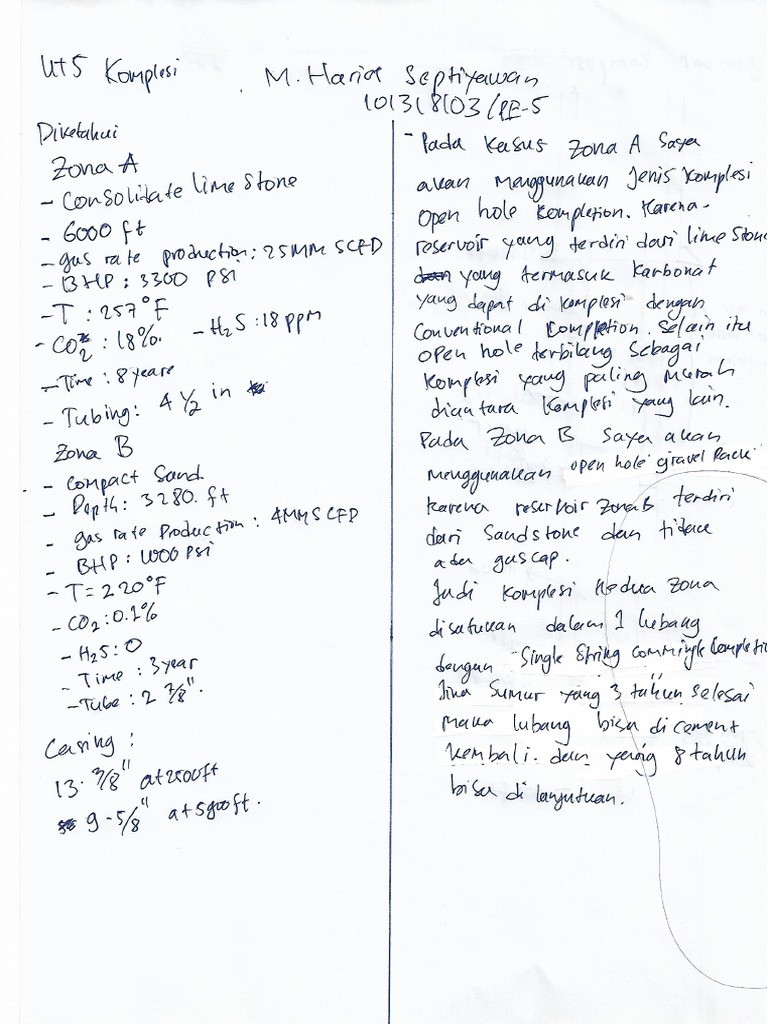 UTS Komplesi
M. Haris Septiyawan
101318103/PE-5
Diketahui
Zona A
- Consolidate lime Stone
- 6000 ft
- gas rate production : 25 MM SCFD
- BHP : 3300 PSI
- T : 257°F
- CO2 : 18%. - H2S : 18 ppm
- Time : 8 years
- Tubing : 4 1/2 in
Zona B
- Compact Sand
- Depth : 3280. ft
- gas rate Production : 4MMSCFD
- BHP : 1000 psi
- T = 220°F
- CO2 : 0.1%
- H2S : 0
- Time : 3 year
- Tube : 2 7/8".
Casing :
13. 3/8" at 2500ft
9-5/8" at 5900ft.
- Pada Kasus Zona A Saya
akan Menggunakan Jenis Komplesi
Open hole Kompletion. Karena
reservoir yang terdiri dari lime Stone
yang termasuk Karbonat
yang dapat di Komplesi dengan
Conventional Kompletion. Selain itu
open hole terbilang Sebagai
Komplesi yang paling Murah
diantara Komplesi yang lain.
Pada Zona B Saya akan
menggunakan open hole gravel Pack
Karena reservoir Zona B terdiri
dari Sandstone dan tidak
ada gascap.
Jadi Komplesi Kedua Zona
disatukan dalam 1 lubang
dengan "Single String commingle Completion"
Jika Sumur yang 3 tahun Selesai
maka lubang bisa di cement
Kembali. dan yang 8 tahun
bisa di lanjutkan.